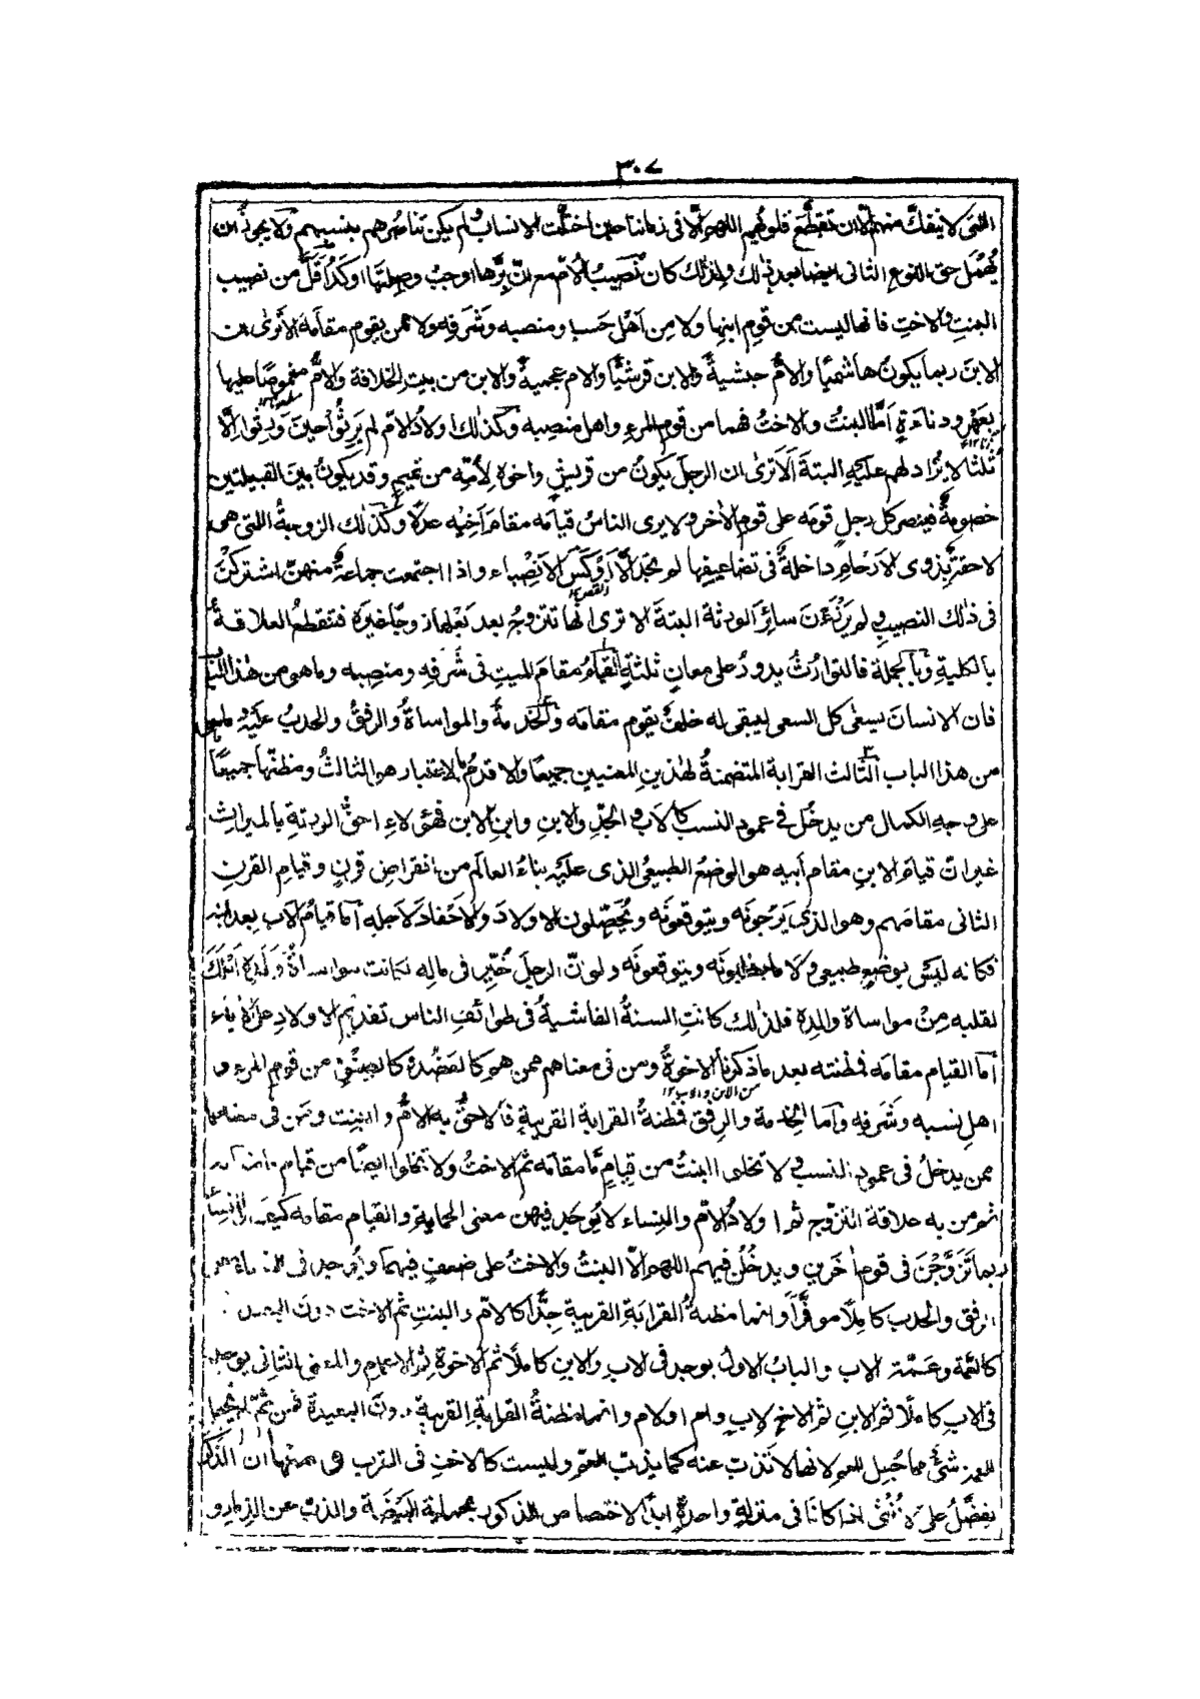 ٣٠٧
التى لا ينفك منهم إلا ان تقطع قلوبهم اللهم إلا فى زماننا حين اختلت الانساب ولم يكن تناصرهم بنسبهم ولا يجوز ان
يهمل حق النوع الثانى ايضا بعد ذلك ولذلك كان نصيب الأم مع ان برها اوجب وصلتها اوكد أقل من نصيب
البنت والاخت فانها ليست من قوم ابنها ولا من اهل حسبه ومنصبه وشرفه ولا ممن يقوم مقامه الا ترى ان
الابن ربما يكون هاشميا والام حبشية والابن قرشيا والام عجمية والابن من بيت الخلافة والام مغموصا عليها
بعهر ودناءة أما البنت والاخت فهما من قوم المرء واهل منصبه وكذلك اولاد الام لم يرثوا حين ورثوا إلا
ثلثا لا يزاد لهم عليه البتة ألا ترى ان الرجل يكون من قريش واخوه لأمه من تميم وقد يكون بين القبيلتين
خصومة فينصر كل رجل قومه على قوم الآخر ولا يرى الناس قيامه مقام أخيه عدلا وكذلك الزوجة التى هى
لاحقة بذوى الارحام داخلة فى تضاعيفها لم تجد الا أوكس الانصباء واذا اجتمعت جماعة منهن اشتركن
فى ذلك النصيب ولم يرزأن سائر الورثة البتة الا ترى انها تتزوج بعد بعلها زوجا غيره فتنقطع العلاقة
بالكلية وبالجملة فالتوارث يدور على معان ثلثة القيام مقام الميت فى شرفه ومنصبه وما هو من هذا الباب
فان الانسان يسعى كل السعى ليبقى له خلف يقوم مقامه والخدمة والمواساة والرفق والحدب عليه وما هو
من هذا الباب الثالث القرابة المتضمنة لهذين المعنيين جميعا والاقدم بالاعتبار هو الثالث ومظنتها جميعا
على وجه الكمال من يدخل فى عمود النسب كالأب والجد والابن وابن الابن فهؤلاء احق الورثة بالميراث
غير ان قيام الابن مقام أبيه هو الوضع الطبيعى الذى عليه بناء العالم من انقراض قرن وقيام القرن
الثانى مقامهم وهو الذى يرجونه ويتوقعونه ويحصلون الاولاد والاحفاد لاجله أما قيام الأب بعد ابنه
فكانه ليس بوضع طبيعى ولا ما يطلبونه ويتوقعونه ولو ان الرجل خير فى ماله لكانت مواساة ولده املك
لقلبه من مواساة والده فلذلك كانت السنة الفاشية فى طوائف الناس تقديم الاولاد على الآباء
أما القيام مقامه فمظنته بعد ما ذكرنا الاخوة ومن فى معناهم ممن هم كالعضد وكالصنو من قوم المرء و
اهل نسبه وشرفه وأما الخدمة والرفق فمظنة القرابة القريبة فالاحق به الام والبنت ومن فى معناهما
ممن يدخل فى عمود النسب ولا تخلو البنت من قيام ما مقامه ثم الاخت ولا تخلوا ايضا من قيام
ثم من به علاقة التزوج ثم اولاد الام والنساء لا يوجد فيهن معنى الحماية والقيام مقامه كيف والنساء
ربما تزوجن فى قوم آخرين ويدخلن فيهم اللهم الا البنت والاخت على ضعف فيهما ويوجد فى
الرفق والحدب كاملا موفرا وانما مظنة القرابة القريبة جدا كالام والبنت ثم الاخت دون البعيدة
كالعمة وعمة الاب والباب الاول يوجد فى الاب والابن كاملا ثم الاخوة ثم الاعمام والمعنى الثانى يوجد
فى الاب كاملا ثم الابن ثم الاخ لاب وام او لام وانما مظنة القرابة القريبة دون البعيدة فمن ثم لم يجعل
للعمة شئ مما جعل للعم لانها لا تذب عنه كما يذب العم وليست كالاخت فى القرب ومنها ان الذكر
يفضل على الانثى اذا كانا فى منزلة واحدة ابدا لاختصاص الذكور بحماية البيضة والذب عن الذمار و